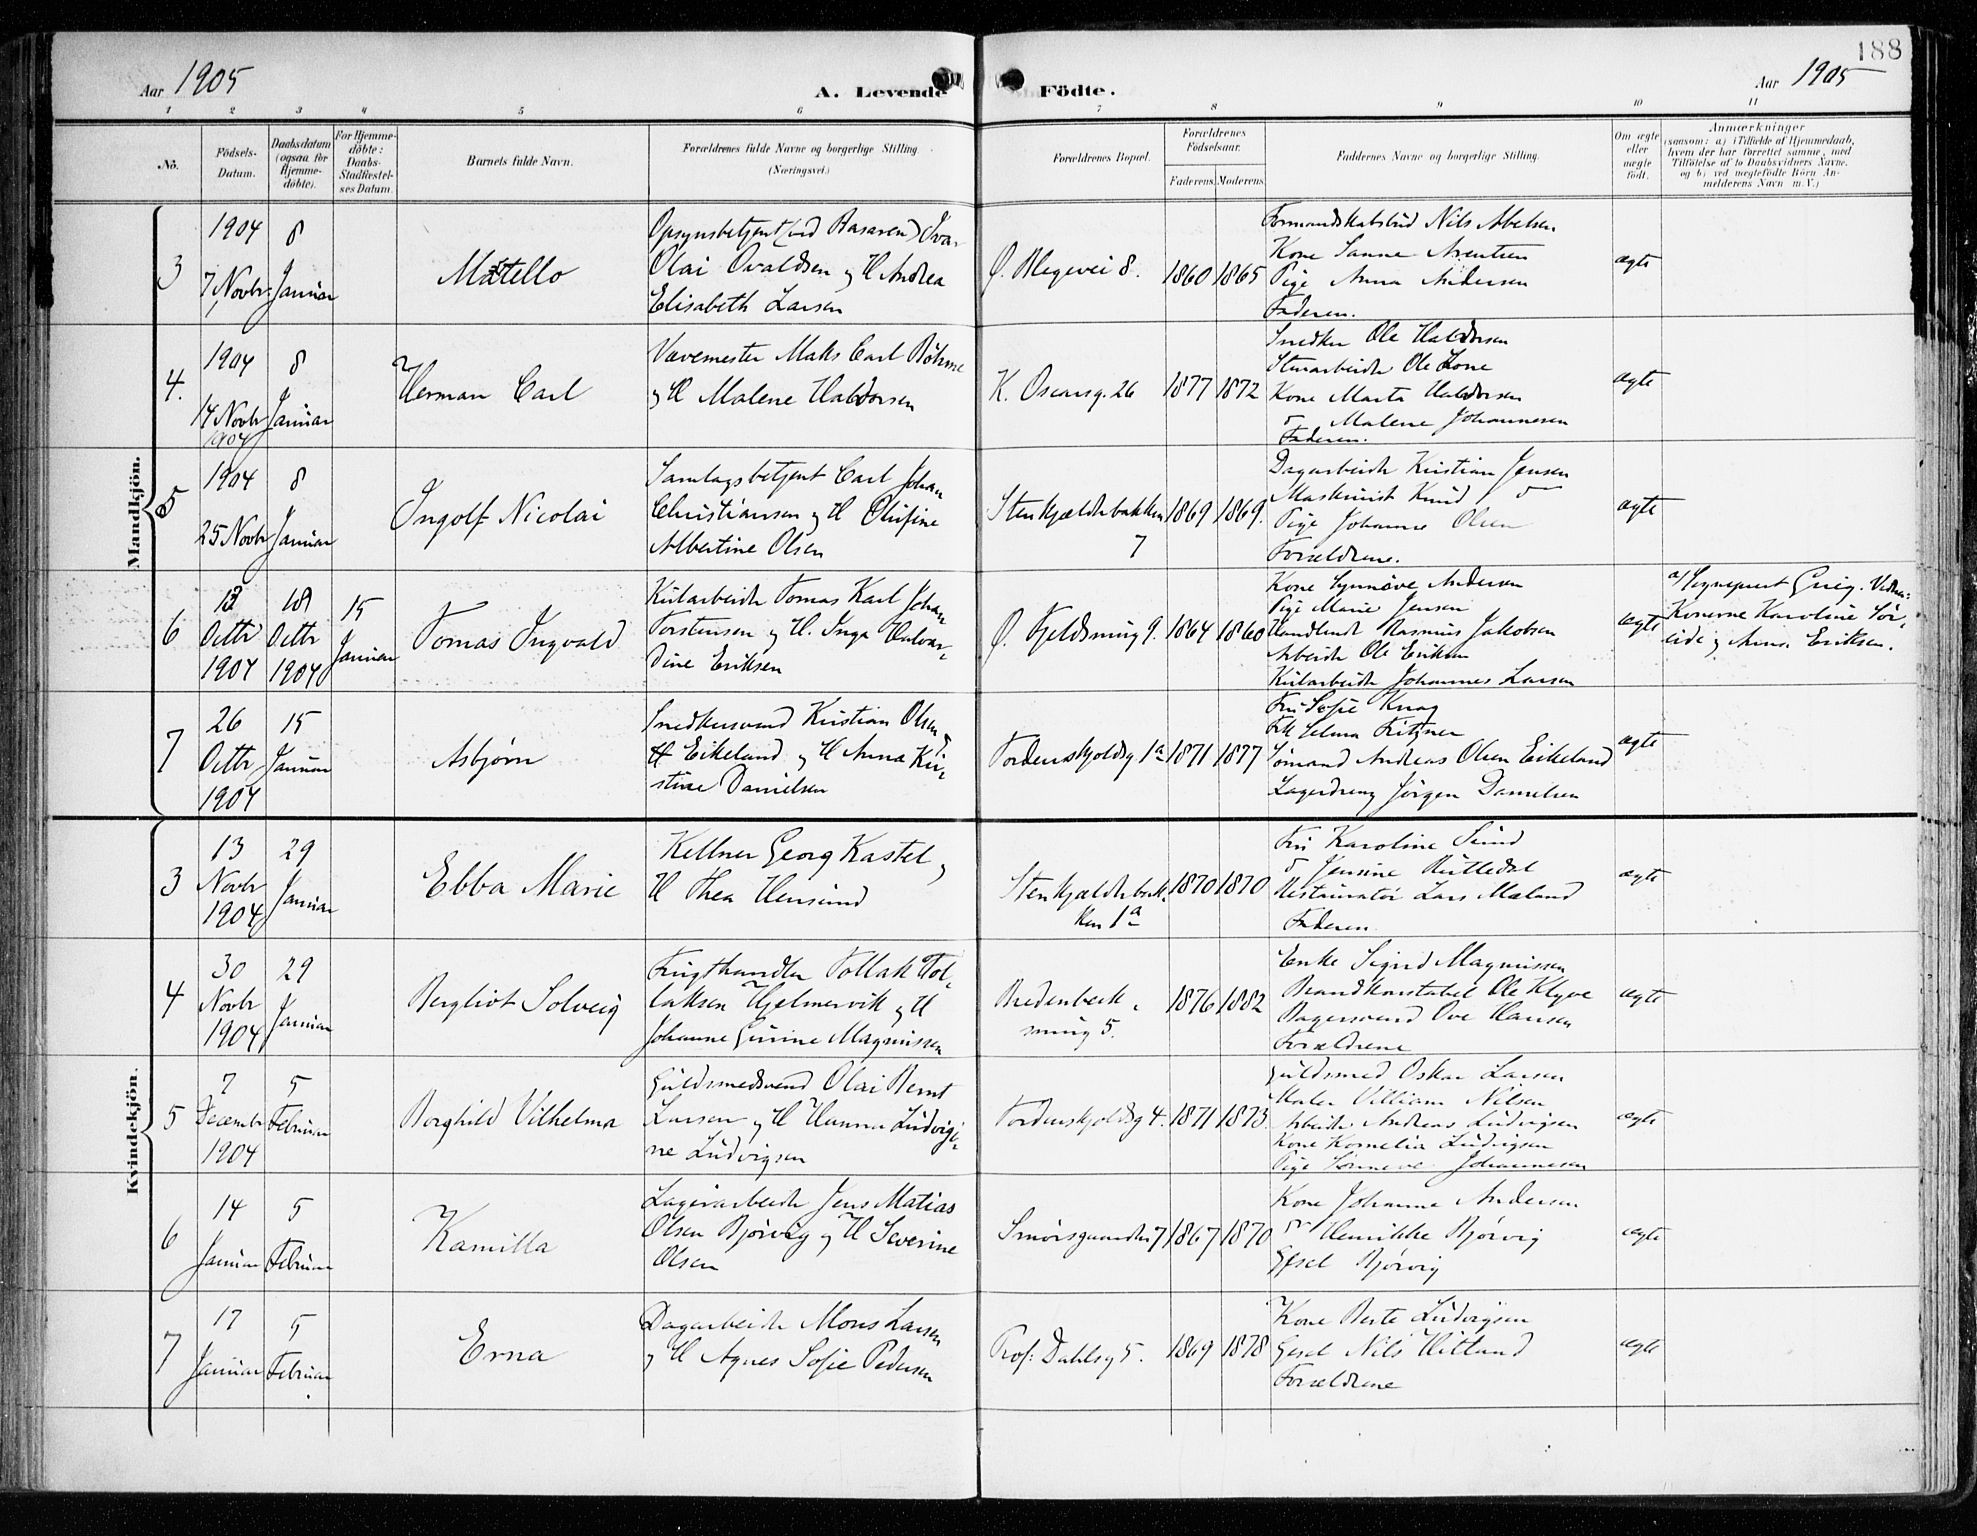 188
Aar 1905
A. Levende Födte.
Aar 1905
1 2 3 4 5 6 7 8 9 10 11
No.
Födsels-Datum.
Daabsdatum (ogsaa for Hjemme-döbte).
For Hjemme-döbte: Daabs-Stadfæstel-ses Datum.
Barnets fulde Navn.
Forældrenes fulde Navne og borgerlige Stilling (Næringsvei.)
Forældrenes Bopæl.
Forældrenes Födselsaar.
Faderens. Moderens.
Faddernes Navne og borgerlige Stilling.
Om ægte eller uægte födt.
Anmærkninger
(saasom: a) i Tilfælde af Hjemmedaab, hvem der har forrettet samme, med Tilföielse af to Daabsvidners Navne. og b) ved uægtefödte Börn An-melderens Navn m. V.)
Mandkjön.
3
1904
7 Novbr
8 Januar
Opsynsbetjent (ved Basaren) Ivar
Olai Ovaldsen og H Andrea
Elisabeth Larsen
Ø. Blegevei 8.
1860 1865
Formandskabsbud Nils Abelsen
Kone Sanne Arentsen
Pige Anna Andersen
Faderen.
ægte
4.
1904
14 Novbr
1904
8 Januar
Herman Carl
Vævemester Maks Carl Böhme
og H Malene Haldorsen
K. Oscarsg. 26
1877 1872
Snedker Ole Haldorsen
Kone Marta Haldorsen
Malene Johannesen
Faderen.
ægte
5
1904
25 Novbr
8 Januar
Ingolf Nicolai
Samlagsbetjent Carl Johan
Christiansen og H Olufine
Albertine Olsen
Stenkjælderbakken
7
1869 1869.
Dagarbeider Kristian Jensen
Maskinist Knud do
Pige Johanne Olsen
Forældrene.
ægte
6
12
Octbr
1904
18
Octbr
1904
15
Januar
Tomas Ingvald
Kularbeider Tomas Karl Johan
Torstensen og H. Inga Halvar-
dine Eriksen
Ø. Fjeldsmug 9.
1864 1860
Kone Synnöve Andersen
Pige Marie Jensen
Handlende Rasmus Jakobsen
Arbeider Ole Eriksen
Kularbeider Johannes Larsen
ægte
a) Sogneprest Grieg. Vidner:
Konerne Karoline Sör-
eide og Anna Eriksen.
7
26
Octbr
1904
15
Januar
Asbjørn
Snedkersvend Kristian Olsen
Eikeland og H Anna Kri-
stine Danielsen
Tordenskjoldsg 1a
1871 1877
Fru Sofie Knag
Frk Selma Fritzner
Sömand Andreas Olsen Eikeland
Lagerdreng Jörgen Danielsen
ægte
Kvindekjön.
3
13
Novbr
1904
29
Januar
Ebba Marie
Kellner Georg Kastel og
H Thea Hensund
Stenkjælderbak-
ken 1a
1870 1870
Fru Karoline Sund
do Jensine Rutledal
Restauratör Lars Mæland
Faderen.
ægte
4
30
Novbr
1904
29
Januar
Bergliot Solveig
Frugthandler Tollak Tol-
laksen Hjelmervik og H
Johanne Gurine Magnussen
Bredenbeck-
smug 5.
1876 1882
Enke Sigrid Magnussen
Brandkonstabel Ole Klyve
Bagersvend Ove Hansen
Forældrene
ægte
5
7
Decembr
1904
5
Februar
Borghild Vilhelma
Guldsmedsvend Olai Bernt
Larsen og H Hanna Ludvigi-
ne Ludvigsen
Tordenskjoldsg 4.
1871 1873
Guldsmed Oskar Larsen
Maler Villiam Nilsen
Arbeider Andreas Ludvigsen
Kone Kornelia Ludvigsen
Pige Synneve Johannesen
ægte
6
14
Januar
5
Februar
Kamilla
Lagerarbeider Jens Matias
Olsen Bjørvig og H Severine
Olsen
Smörsgaarden 7
1867 1870
Kone Johanne Andersen
do Henrikke Bjørvig
Gesel Bjørvig
ægte
7
17
Januar
5
Februar
Erna
Dagarbeider Mons Larsen
og H Agnes Sofie Pedersen
Prof: Dahlsg 5.
1869 1878
Kone Berte Ludvigsen
Gesel Nils Hitland
Forældrene
ægte